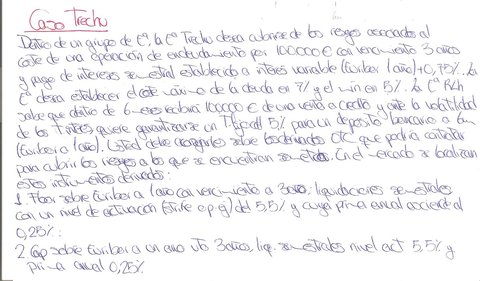 Caso Trechu
Dentro de un grupo de Cª, la Cª Trechu desea cubrirse de los riesgos asociados al
coste de una operación de endeudamiento por 100000 € con vencimiento 3 años
y pago de intereses semestral establecido a interés variable (Euribor 1 año) + 0,75%. La
Cª desea establecer el coste máximo de la deuda en 7% y el mín en 5%. La Cª
sabe que dentro de 6 meses cobrará 100000 € de una venta a crédito y ante la volatilidad
de los T interés quiere garantizarse un T fijo del 5% para un depósito bancario a 6m
(Euribor a 1 año). Usted debe asesorarles sobre los derivados OTC que podría contratar
para cubrir los riesgos a los que se encuentran sometidos. En el mercado se localizan
estos instrumentos derivados:
1. Floor sobre Euribor a 1 año con vencimiento a 3 años, liquidaciones semestrales
con un nivel de actuación (strike o p.ej) del 5,5% y cuya prima anual asciende al
0,25%.
2. Cap sobre Euribor a un año Vto 3 años, liq. semestrales nivel act 5,5% y
prima anual 0,25%